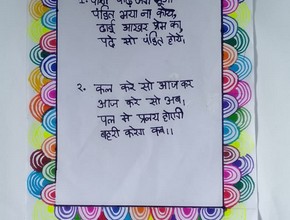 पंडित भया ना कोय,
ढाई आखर प्रेम का,
पढ़े सो पंडित होये।
२. कल करे सो आज कर
आज करे सो अब,
पल में प्रलय होएगी
बहरी करेगा कब।।